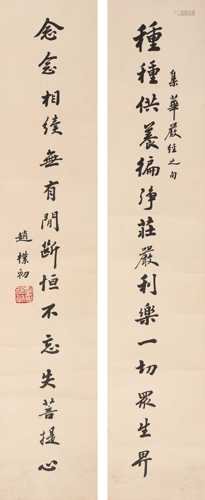 種種供養徧淨莊嚴利樂一切眾生界
集華嚴經之句
念念相續無有間斷恒不忘失菩提心
趙樸初